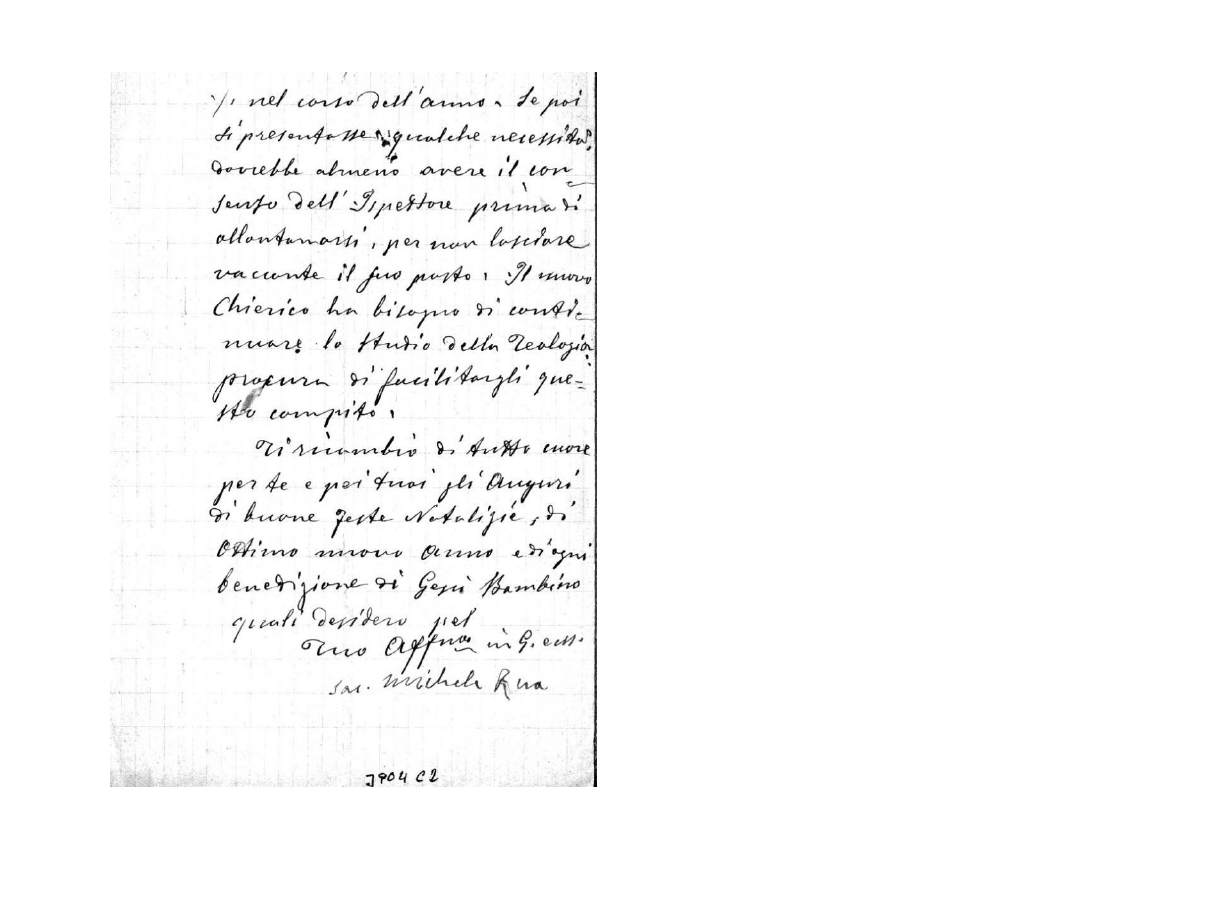 ./. nel corso dell'anno. Se poi
si presentasse qualche necessità,
dovrebbe almeno avere il con=
senso dell'Ispettore prima di
allontanarsi, per non lasciare
vacante il suo posto. Il nuovo
Chierico ha bisogno di conti=
nuare lo studio della Teologia:
procura di facilitargli que=
sto compito.
Ti ricambio di tutto cuore
per te e pei tuoi gli Auguri
di buone feste Natalizie, di
Ottimo nuovo Anno e di ogni
benedizione di Gesù Bambino
quali desidero pel
Tuo Affmo in G. e M.
Sac. Michele Rua
3904 C2